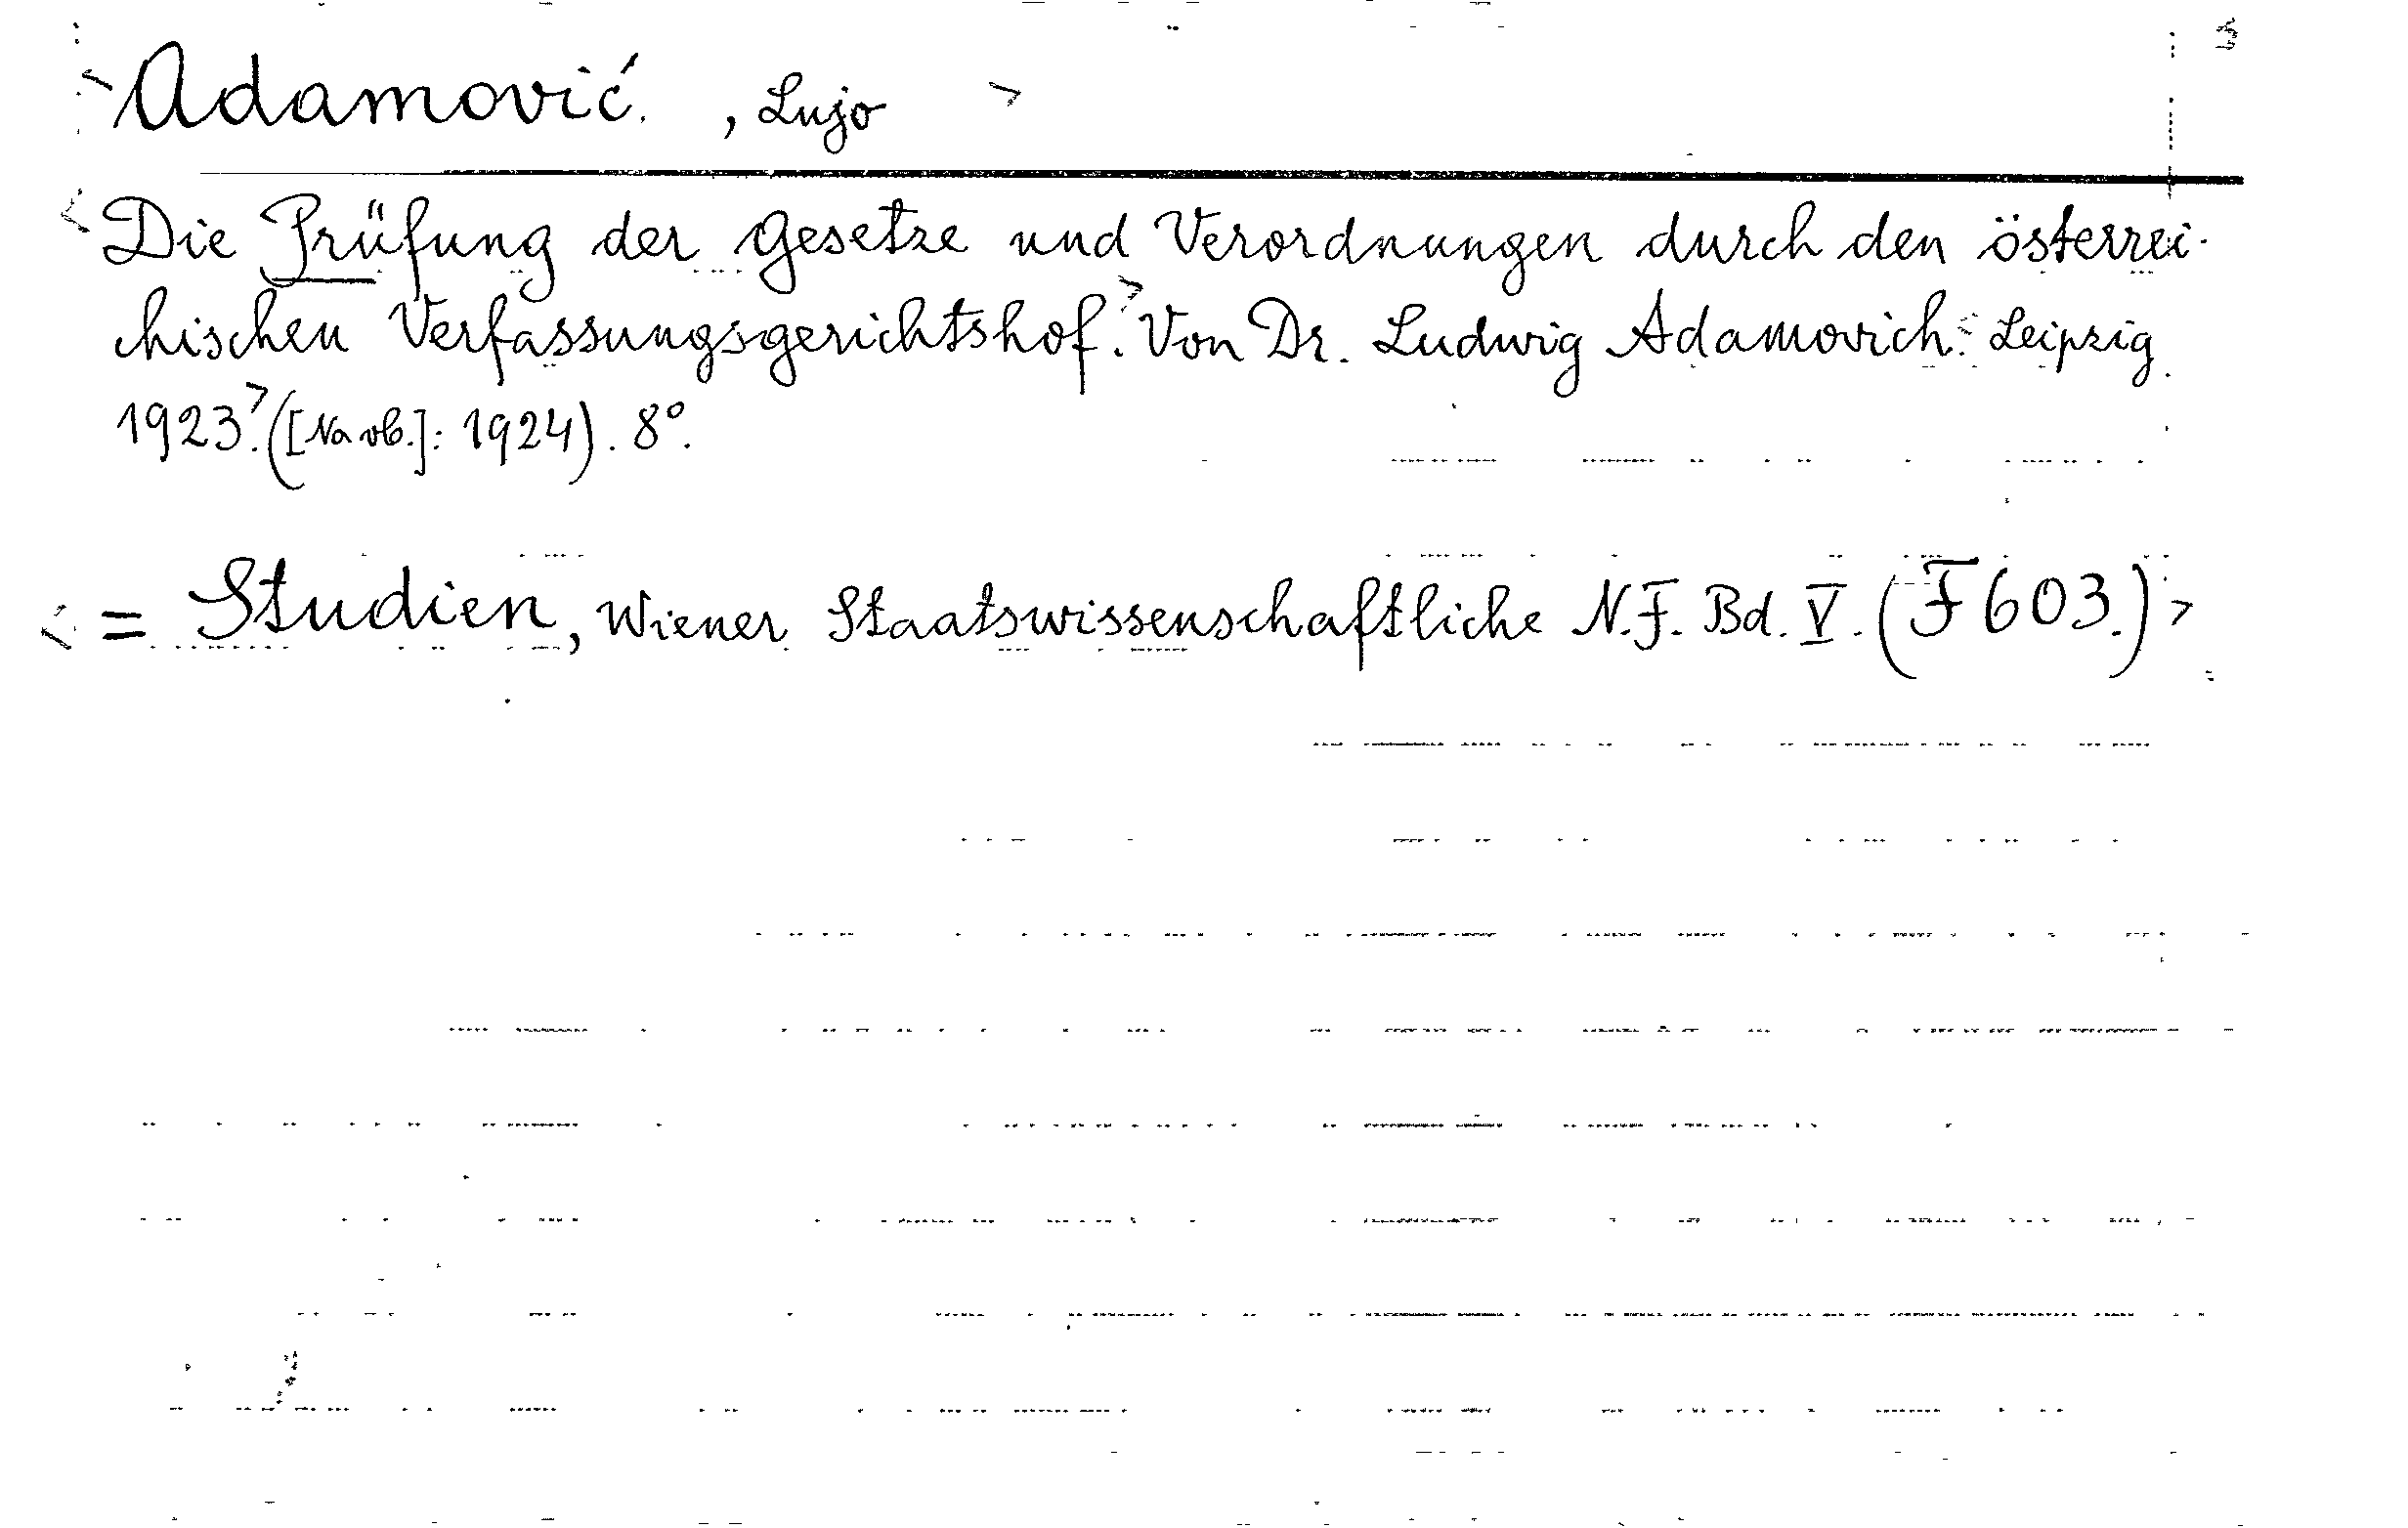 <Adamović. , Lujo >
<Die Prüfung der Gesetze und Verordnungen durch den österrei-
chischen Verfassungsgerichtshof.> Von Dr. Ludwig Adamovich. <Leipzig
1923.> ([Na ob.]: 1924). 8°.
<= Studien, Wiener Staatswissenschaftliche N.F. Bd. V. (F 603.)>